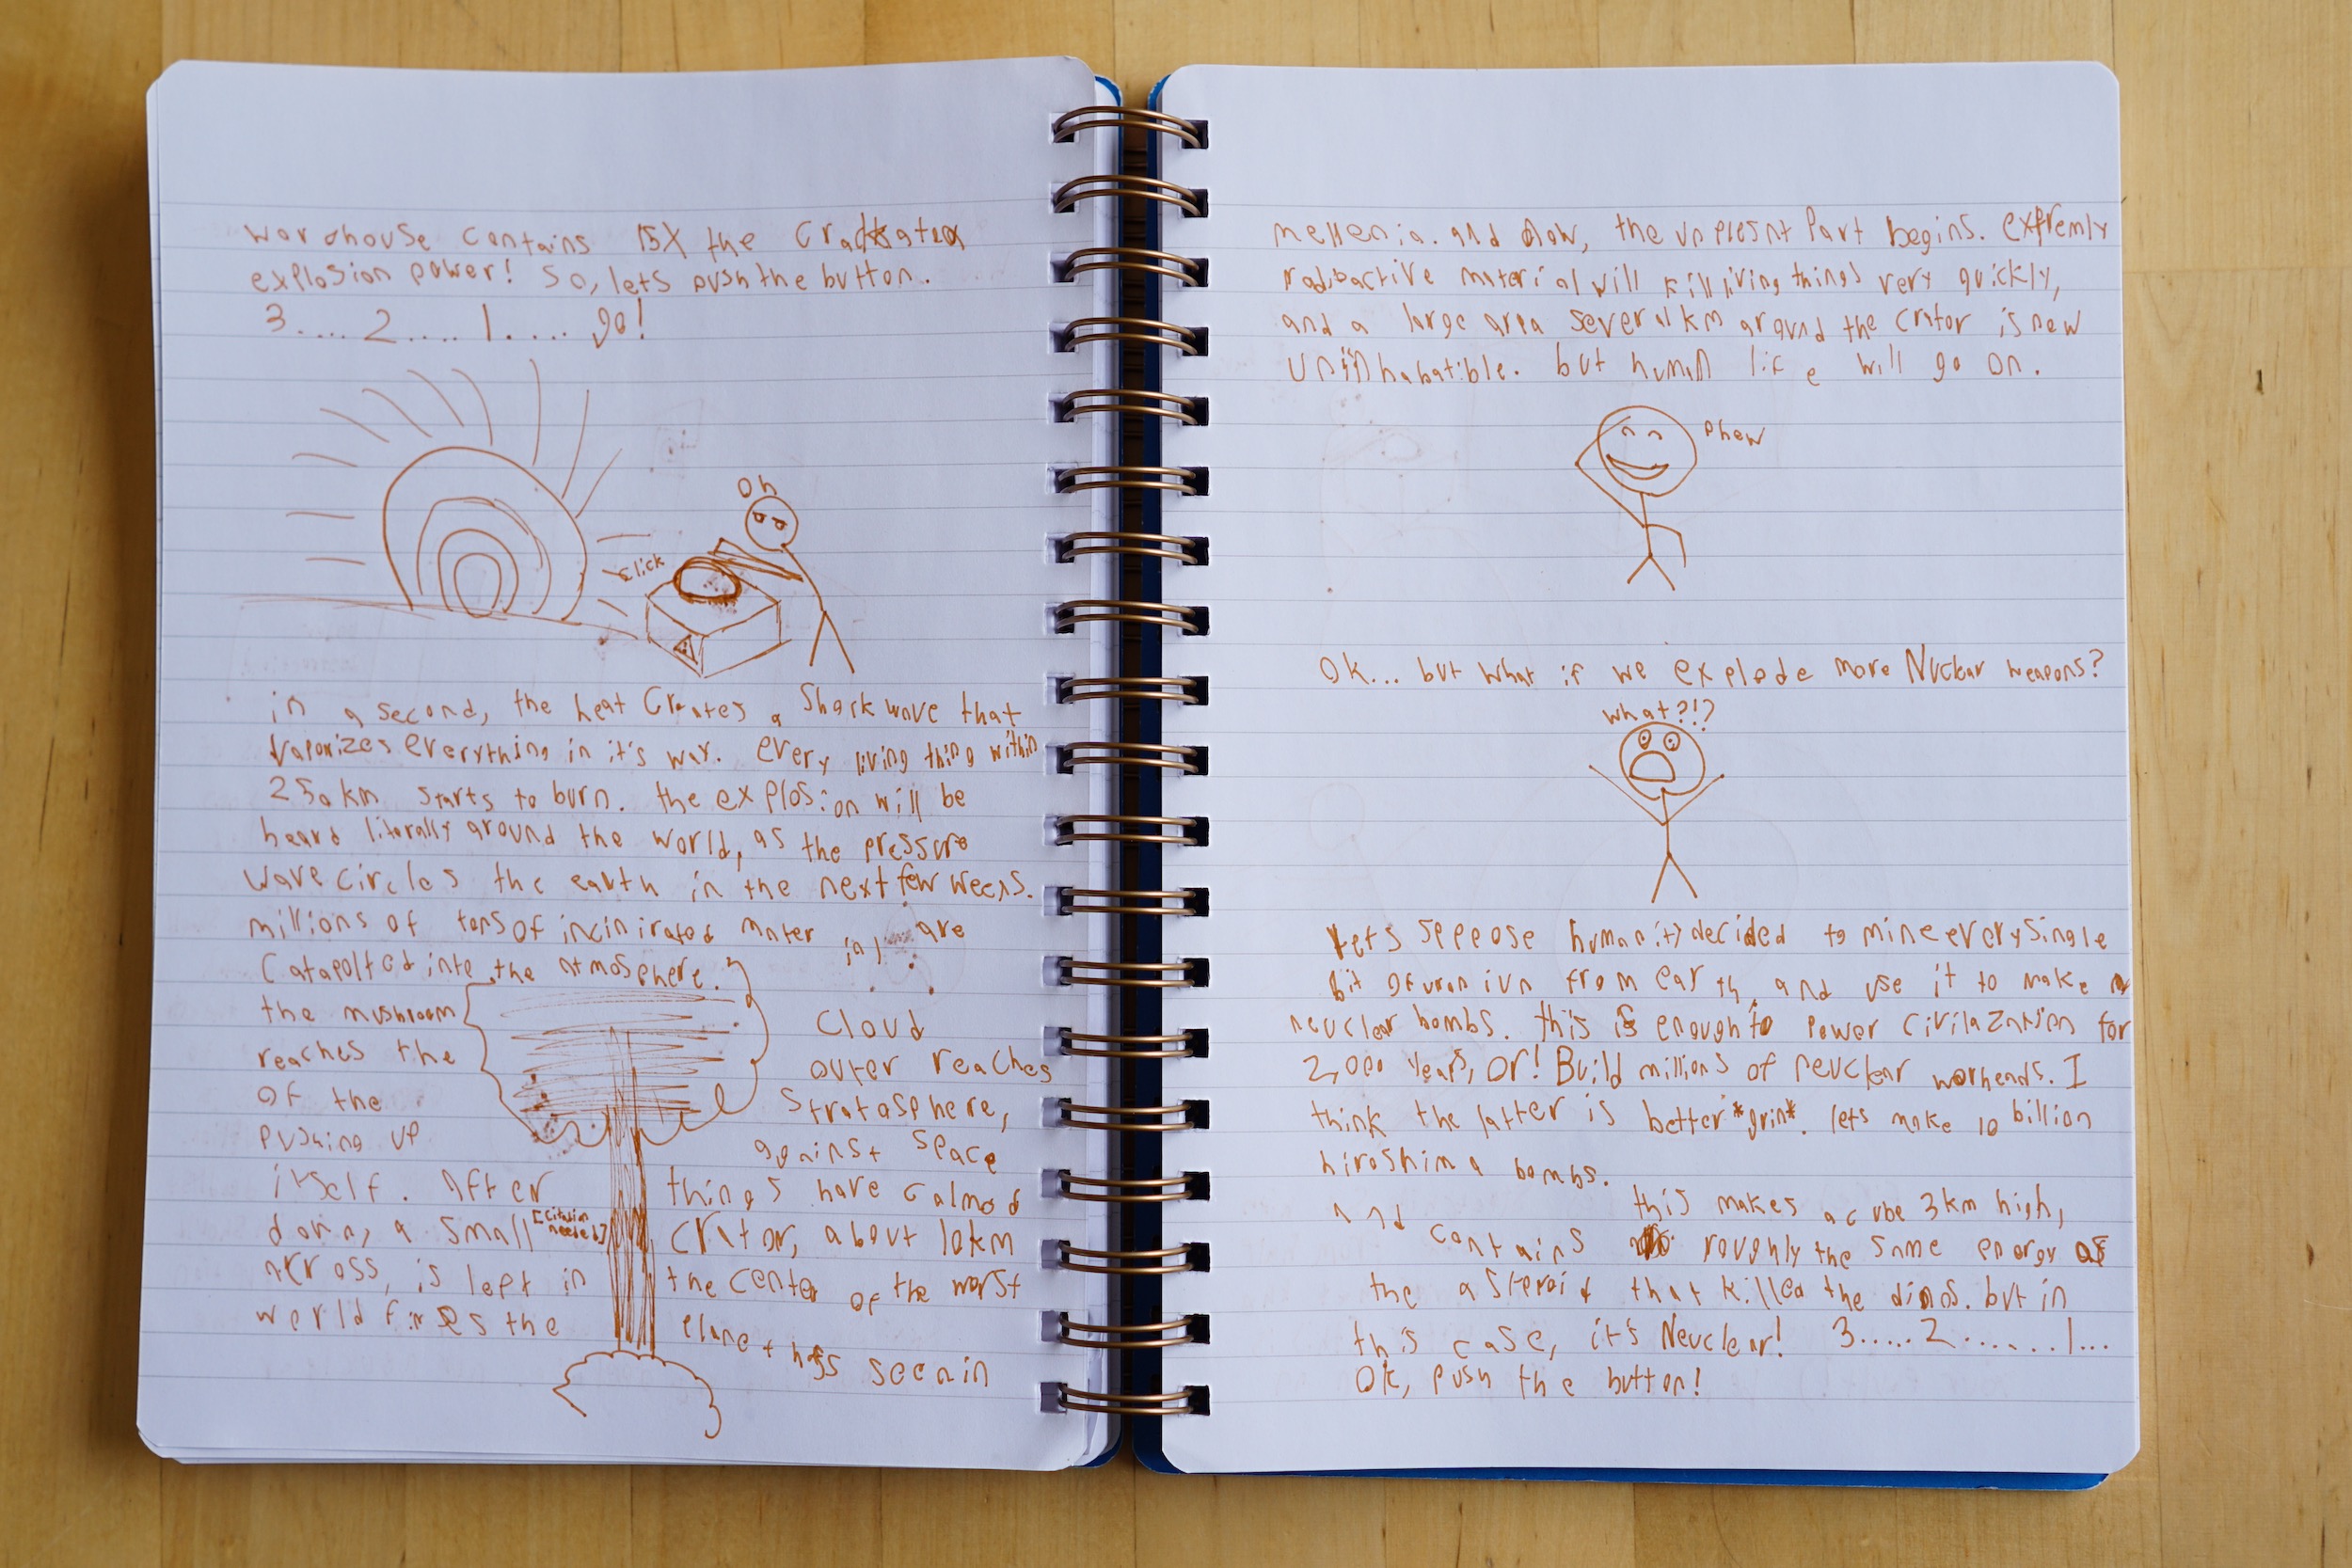 warehouse contains 15X the Crackatoa
explosion power! so, lets push the button.
3.... 2.... 1..... go!
Oh
click
in a second, the heat Creates a Shockwave that
vaporizes everything in it's way. every living thing within
250km starts to burn. the explosion will be
heard literally around the world, as the pressure
wave circles the earth in the next few weeks.
millions of tons of incinirated material are
Catapolted into the atmosphere.
the mushroom Cloud
reaches the outer reaches
of the Stratasphere,
pushing up against space
itself. After things have calmed
down, a small [citation needed] crator, about 10km
across, is left in the center of the worst
world fires the planet has seen in
mellenia. and now, the unplesnt Part begins. extremly
radioactive material will kill living things very quickly,
and a large area several km around the crator is now
uninhabatible. but human life will go on.
Phew
Ok... but what if we explode more Nuclear weapons?
what?!?
Lets seppose humanity decided to mine every single
bit of uranium from earth, and use it to make
neuclear bombs. this is enough to power civilazation for
2,000 years, or! Build millions of neuclear warheads. I
think the latter is better *grin*. lets make 10 billion
hiroshima bombs.
this makes a cube 3km high,
And contains roughly the same energy as
the asteroid that killed the dinos. but in
this case, it's Neuclear! 3.....2......1...
Ok, push the button!